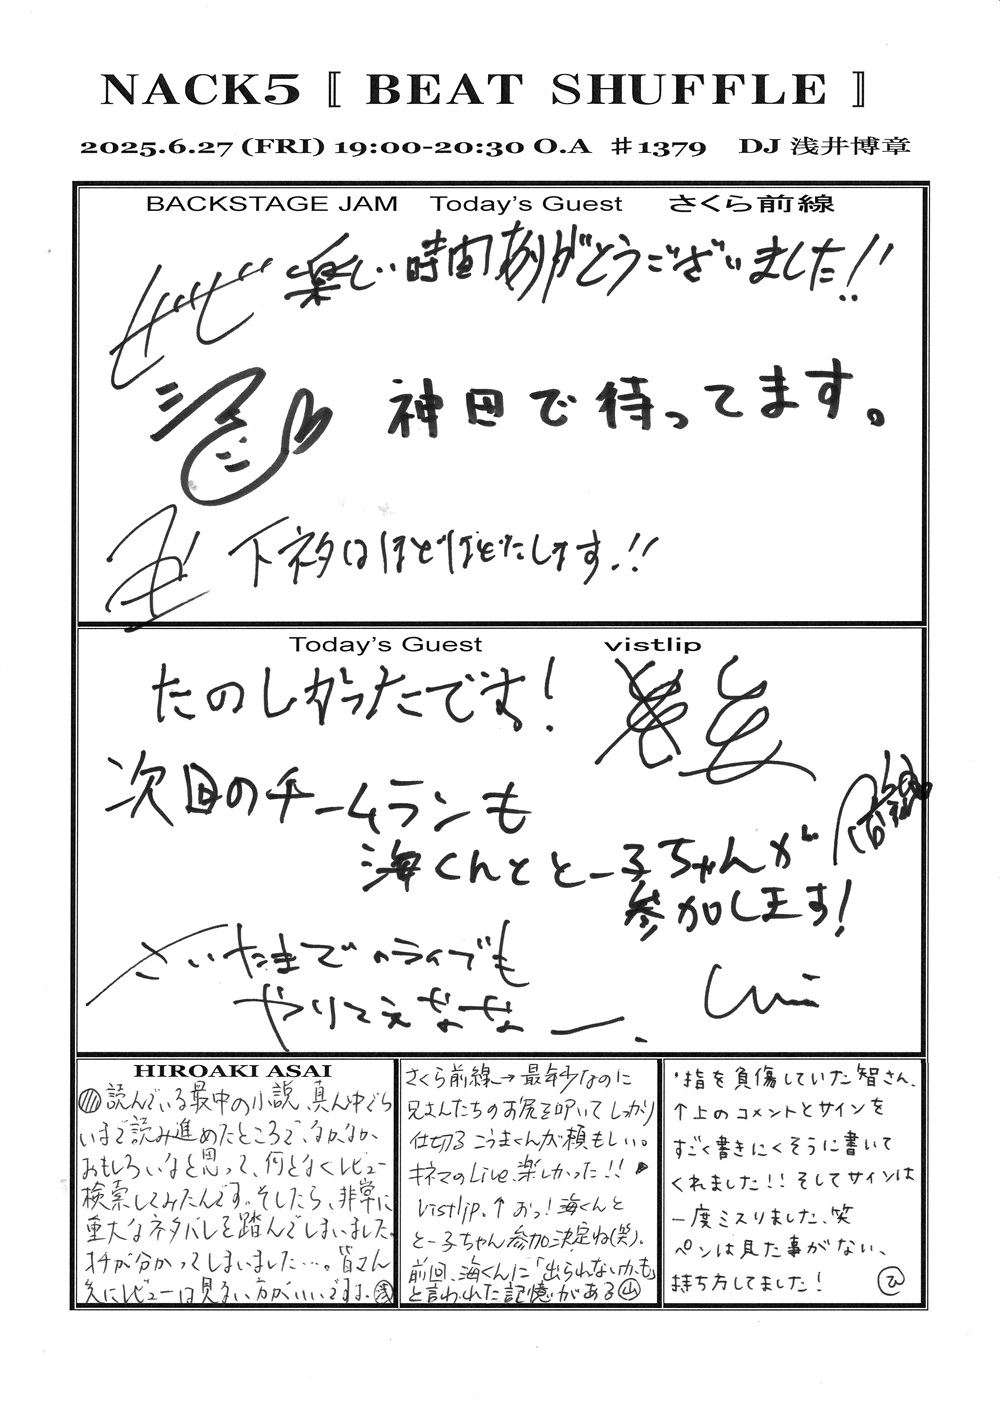 NACK5『 BEAT SHUFFLE 』
2025.6.27 (FRI) 19:00-20:30 O.A ♯1379 DJ 浅井博章
BACKSTAGE JAM Today's Guest さくら前線
楽しい時間ありがとうございました!!
神田で待ってます。
下ネタはほどほどにします!!
Today's Guest vistlip
たのしかったです!
次回のチームランも
海くんととー子ちゃんが
参加します!
さいたまでのライブも
やりてえなぁなぁー.
HIROAKI ASAI
読んでいる最中の小説、真ん中ぐら
いまで読み進めたところで、なかなか
おもしろいなと思って、何となくレビュー
検索してみたんです。そしたら、非常に
重大なネタバレを踏んでしまいました。
オチが分かってしまいました…。皆さん
先にレビューは見ない方がいいですよ。浅
さくら前線→最年少なのに
兄さんたちのお尻を叩いてしっかり
仕切るこうまくんが頼もしい。
キネマのLive、楽しかった!!
vistlip、↑おっ!海くんと
とー子ちゃん参加決定ね(笑)。
前回、海くんに「出られないかも」
と言われた記憶がある 山
・指を負傷していた智さん、
↑上のコメントとサインを
すごく書きにくそうに書いて
くれました!! そしてサインは
一度ミスりました、笑
ペンは見た事がない、
持ち方してました! ひ